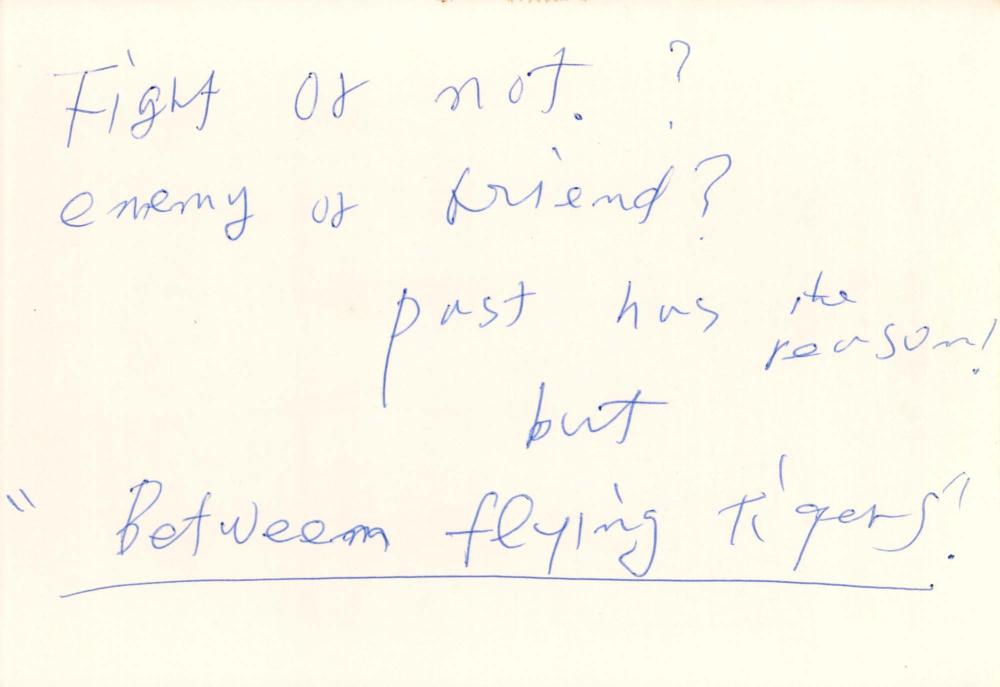 Fight or not. ?
enemy or friend?
past has its
reason!
but
" Between flying tigers"!